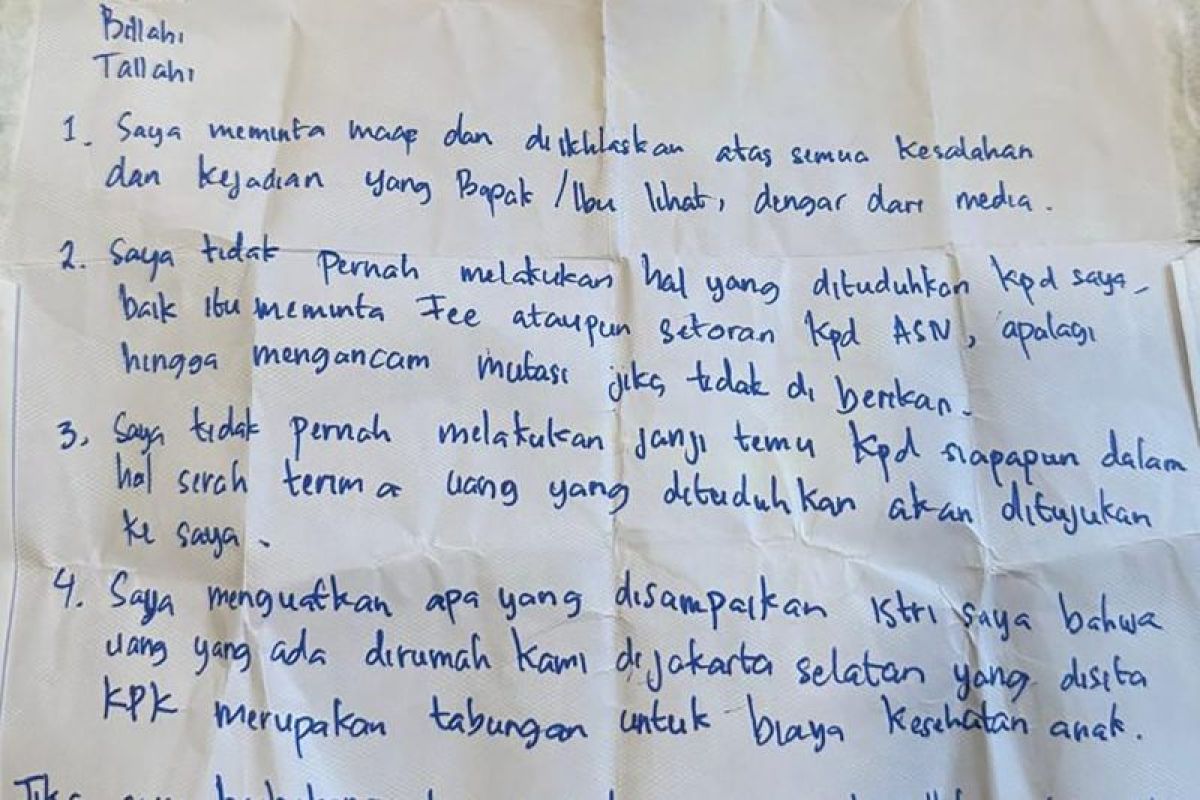 Billahi
Tallahi
1. Saya meminta maap dan diikhlaskan atas semua kesalahan
dan kejadian yang Bapak / Ibu lihat, dengar dari media.
2. Saya tidak pernah melakukan hal yang dituduhkan kpd saya,
baik itu meminta Fee ataupun setoran kpd ASN, apalagi
hingga mengancam mutasi jika tidak di berikan.
3. Saya tidak pernah melakukan janji temu kpd siapapun dalam
hal serah terima uang yang dituduhkan akan ditujukan
ke saya.
4. Saya menguatkan apa yang disampaikan istri saya bahwa
uang yang ada dirumah kami dijakarta selatan yang disita
KPK merupakan tabungan untuk biaya kesehatan anak.
Jika